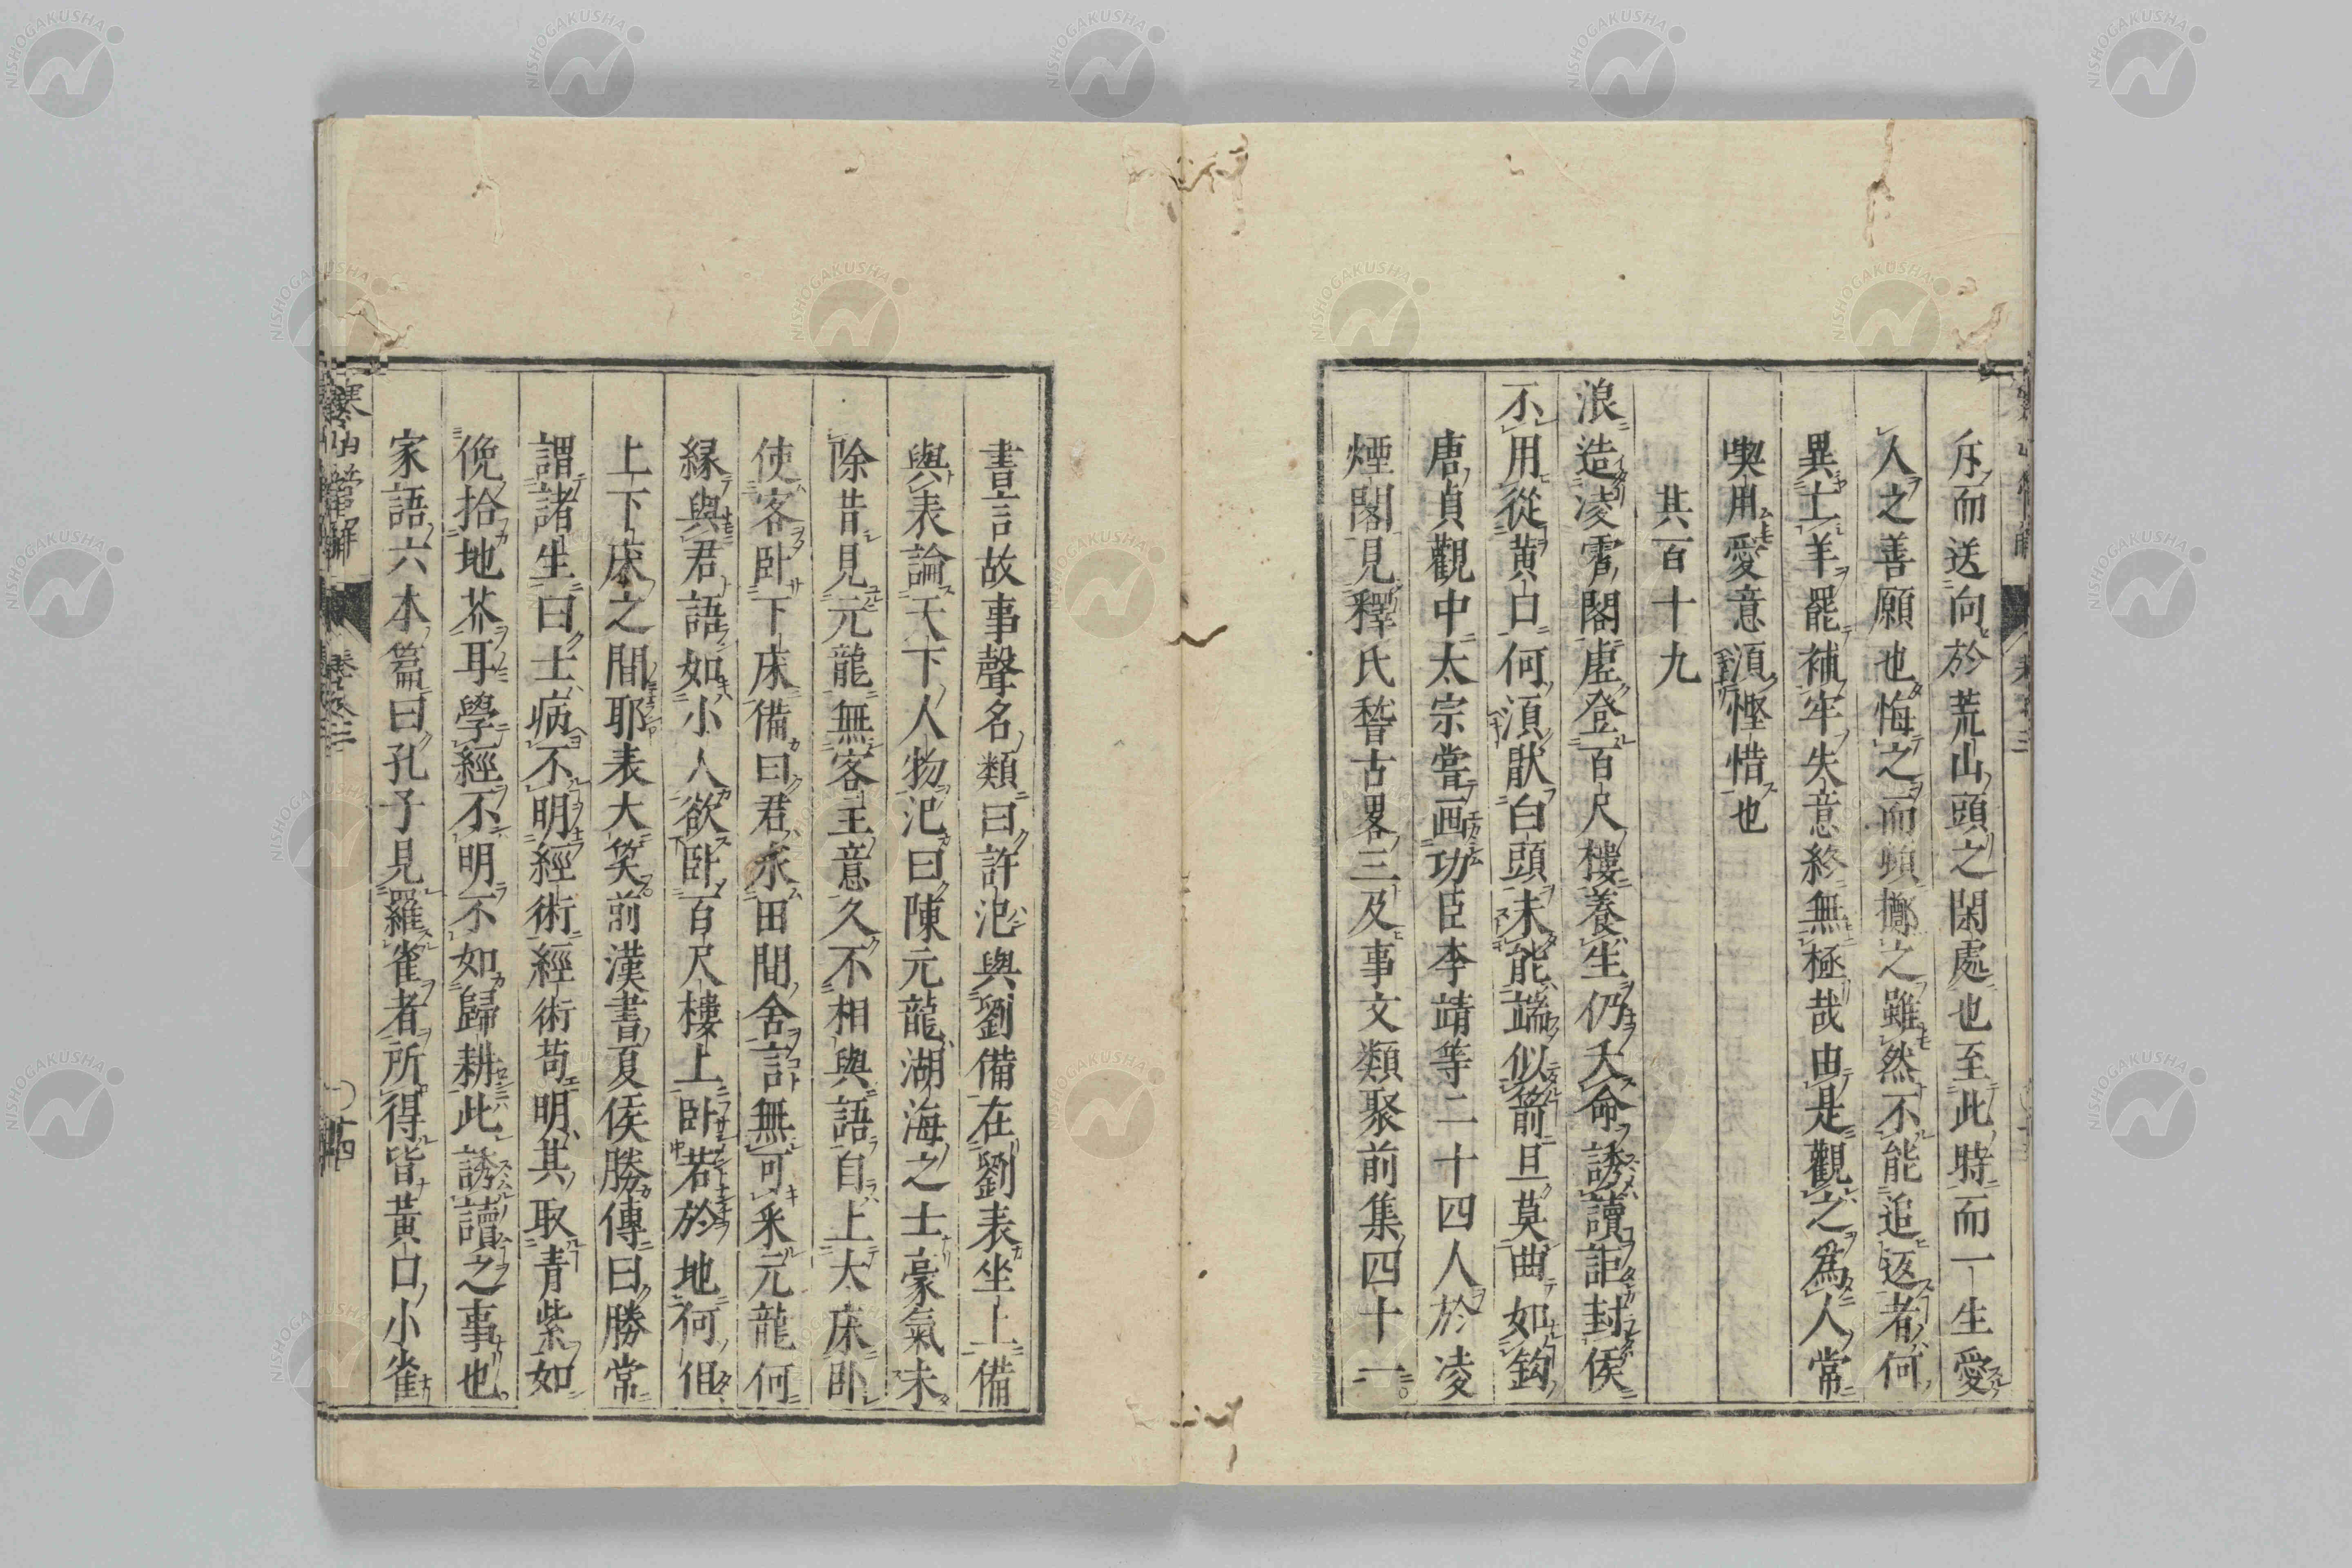 斥而送向於荒山頭之閑處也至此時而一生愛
人之善願也悔之而頻擲之雖然不能追返者何
異亡羊罷補牢失意終無極哉由是觀之為人常
喫用愛意須慳惜也
其百十九
浪造凌霄閣虛登百尺樓養生仍夭命誘讀詎封侯
不用從黃口何須猒白頭未能端似箭且莫曲如鈎
唐貞觀中太宗嘗画功臣李靖等二十四人於凌
煙閣見釋氏稽古畧三及事文類聚前集四十一
書言故事聲名類曰許汜與劉備在劉表坐上備
與表論天下人物汜曰陳元龍湖海之士豪氣未
除昔見元龍無客主意久不相與語自上大床卧
使客卧下床備曰君求田間舍言無可采元龍何
縁與君語如小人欲卧百尺樓上卧若於地何但
上下床之間耶表大笑前漢書夏侯勝傳曰勝常
謂諸生曰士病不明經術經術苟明其取青紫如
俛拾地芥耳學經不明不如歸耕此誘讀之事也
家語六本篇曰孔子見羅雀者所得皆黃口小雀
NISHOGAKUSHA